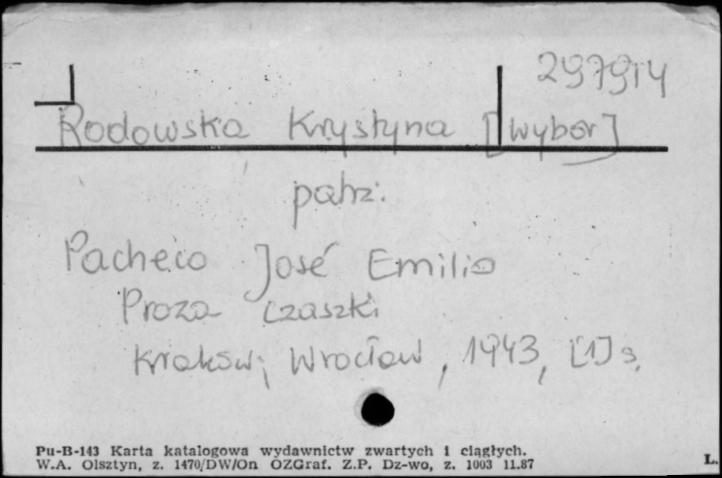 297914
Rodowska Krystyna [wybór]
patrz:
Pacheco José Emilio
Proza czaszki
Kraków; Wrocław, 1943, [1] s.
Pu-B-143 Karta katalogowa wydawnictw zwartych i ciągłych.
W.A. Olsztyn, z. 1470/DW/On OZGraf. Z.P. Dz-wo, z. 1003 11.87
L.